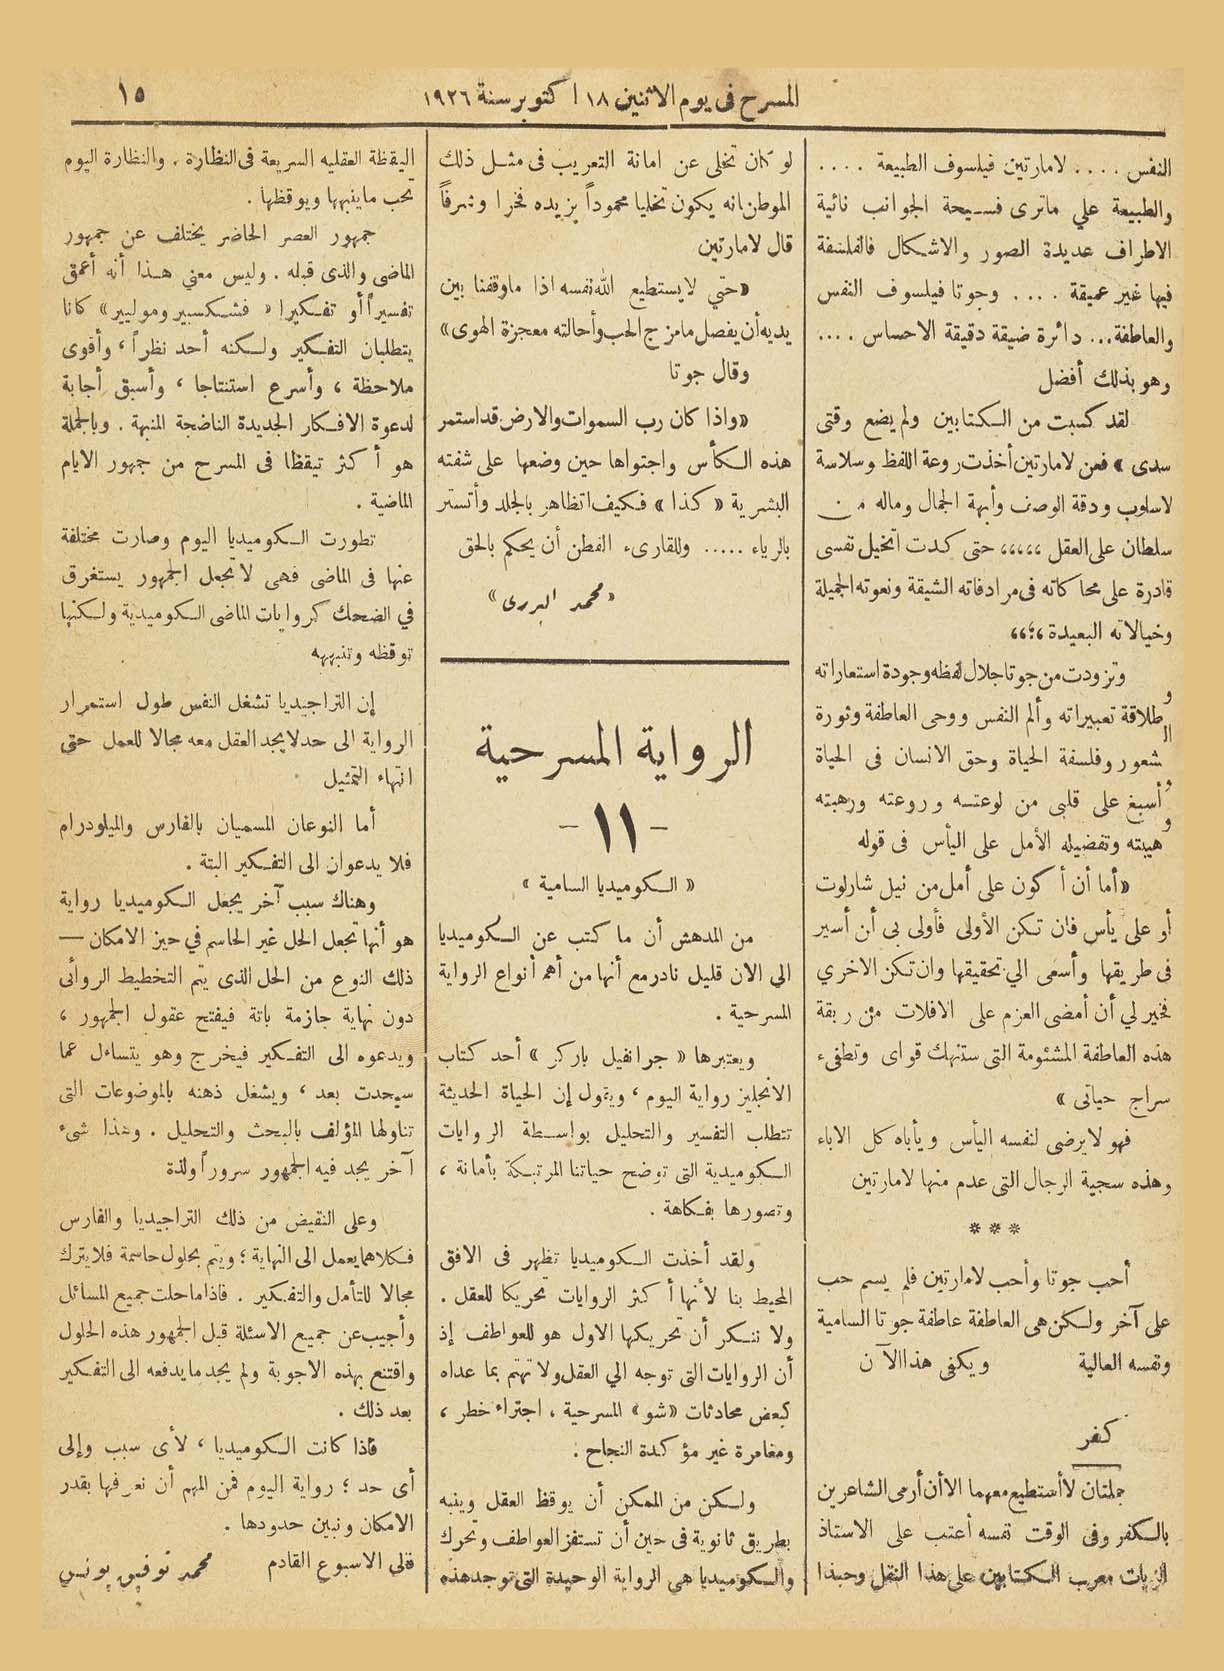 المسرح فى يوم الاثنين ١٨ اكتوبر سنة ١٩٢٦
١٥
النفس .... لامارتين فيلسوف الطبيعة ....
والطبيعة علي ماترى فسيحة الجوانب نائية
الاطراف عديدة الصور والاشكال فالفلسفة
فيها غير عميقة .... وجوتا فيلسوف النفس
والعاطفة... دائرة ضيقة دقيقة الاحساس ....
وهو بذلك أفضل
لقد كسبت من الكتابين ولم يضع وقتى
سدى » فمن لامارتين أخذت روعة اللفظ وسلاسة
لاسلوب ودقة الوصف وأبهة الجمال وماله من
سلطان على العقل ،،،،، حتى كدت اتخيل نفسى
قادرة على محاكاته فى مرادفاته الشيقة ونعوته الجميلة
وخيالاته البعيدة
وتزودت من جوتا جلال لفظه وجودة استعاراته
وطلاقة تعبيراته وألم النفس ووحى العاطفة وثورة
الشعور وفلسفة الحياة وحق الانسان فى الحياة
وأسبغ على قلبى من لوعته وروعته ورهبته
وهيبته وتفضيله الأمل على اليأس فى قوله
«أما أن أكون على أمل من نيل شارلوت
أو على يأس فان تكن الأولى فأولى بى أن أسير
فى طريقها وأسعى الي تحقيقها وان تكن الاخري
فخير لي أن أمضى العزم على الافلات من ربقة
هذه العاطفة المشئومة التى ستنهك قواى وتطفىء
سراج حياتى »
فهو لايرضى لنفسه اليأس ويأباه كل الاباء
وهذه سجية الرجال التى عدم منها لامارتين
***
أحب جوتا وأحب لامارتين فلم يسم حب
على آخر ولكن هى العاطفة عاطفة جوتا السامية
ونفسه العالية ويكفى هذا الآن
كفر
جملتان لا أستطيع معهما الا أن أرمى الشاعرين
بالكفر وفى الوقت نفسه أعتب على الاستاذ
الزيات معرب الكتابين على هذا النقل وحبذا
لو كان تخلى عن امانة التعريب فى مثل ذلك
الموطن انه يكون تخليا محموداً يزيده فخرا وشرفاً
قال لامارتين
«حتي لا يستطيع الله نفسه اذا ماوقفنا بين
يديه أن يفصل مامزج الحب وأحالته معجزة الهوى»
وقال جوتا
«واذا كان رب السموات والارض قد استمر
هذه الكأس واجتواها حين وضعها على شفته
البشرية « كذا » فكيف اتظاهر بالجلد وأتستر
بالرياء ..... وللقارىء الفطن أن يحكم بالحق
«محمد البدرى»
الرواية المسرحية
- ١١ -
« الكوميديا السامية »
من المدهش أن ما كتب عن الكوميديا
الي الان قليل نادر مع أنها من أهم أنواع الرواية
المسرحية .
ويعتبرها « جرانفيل باركر » أحد كتاب
الانجليز رواية اليوم ، ويقول إن الحياة الحديثة
تتطلب التفسير والتحليل بواسطة الروايات
الكوميدية التى توضح حياتنا المرتبكة بأمانة ،
وتصورها بفكاهة .
ولقد أخذت الكوميديا تظهر فى الافق
المحيط بنا لأنها أكثر الروايات تحريكا للعقل .
ولا ننكر أن تحريكها الاول هو للعواطف إذ
أن الروايات التى توجه الي العقل ولا تهتم بما عداه
كبعض محادثات «شو» المسرحية ، اجتراء خطر ،
ومغامرة غير مؤكدة النجاح .
ولكن من الممكن أن يوقظ العقل وينبه
بطريق ثانوية فى حين أن تستفز العواطف وتحرك
والكوميديا هى الرواية الوحيدة التى توجد هذه
اليقظة العقليه السريعة فى النظارة . والنظارة اليوم
تحب ماينبهها ويوقظها .
جمهور العصر الحاضر يختلف عن جمهور
الماضى والذى قبله . وليس معني هذا أنه أعمق
تفسيراً أو تفكيرا « فشكسبير وموليير » كانا
يتطلبان التفكير ولكنه أحد نظراً ، وأقوى
ملاحظة ، وأسرع استنتاجا ، وأسبق أجابة
لدعوة الافكار الجديدة الناضجة المنبهة . وبالجملة
هو أكثر تيقظا فى المسرح من جمهور الايام
الماضية .
تطورت الكوميديا اليوم وصارت مختلفة
عنها فى الماضى فهى لا تجعل الجمهور يستغرق
في الضحك كروايات الماضى الكوميدية ولكنها
توقظه وتنبهه
إن التراجيديا تشغل النفس طول استمرار
الرواية الى حد لا يجد العقل معه مجالا للعمل حتى
انتهاء التمثيل
أما النوعان المسميان بالفارس والميلودرام
فلا يدعوان الى التفكير البتة .
وهناك سبب آخر يجعل الكوميديا رواية
هو أنها تجعل الحل غير الحاسم في حيز الامكان —
ذلك النوع من الحل الذى يتم التخطيط الروائى
دون نهاية جازمة باتة فيفتح عقول الجمهور ،
ويدعوه الى التفكير فيخرج وهو يتساءل عما
سيحدت بعد ، ويشغل ذهنه بالموضوعات التى
تناولها المؤلف بالبحث والتحليل . وهذا شىء
آخر يجد فيه الجمهور سروراً ولذة
وعلى النقيض من ذلك التراجيديا والفارس
فكلاهما يعمل الى النهاية ؛ ويتم بحلول حاسمة فلا يترك
مجالا للتأمل والتفكير . فاذا ماحلت جميع المسائل
وأجيب عن جميع الاسئلة قبل الجمهور هذه الحلول
واقتنع بهذه الاجوبة ولم يجد مايدفعه الى التفكير
بعد ذلك .
فاذا كانت الكوميديا ، لأى سبب وإلى
أى حد ؛ رواية اليوم فمن المهم أن نعرفها بقدر
الامكان ونبين حدودها .
فالي الاسبوع القادم محمد توفيق يونس